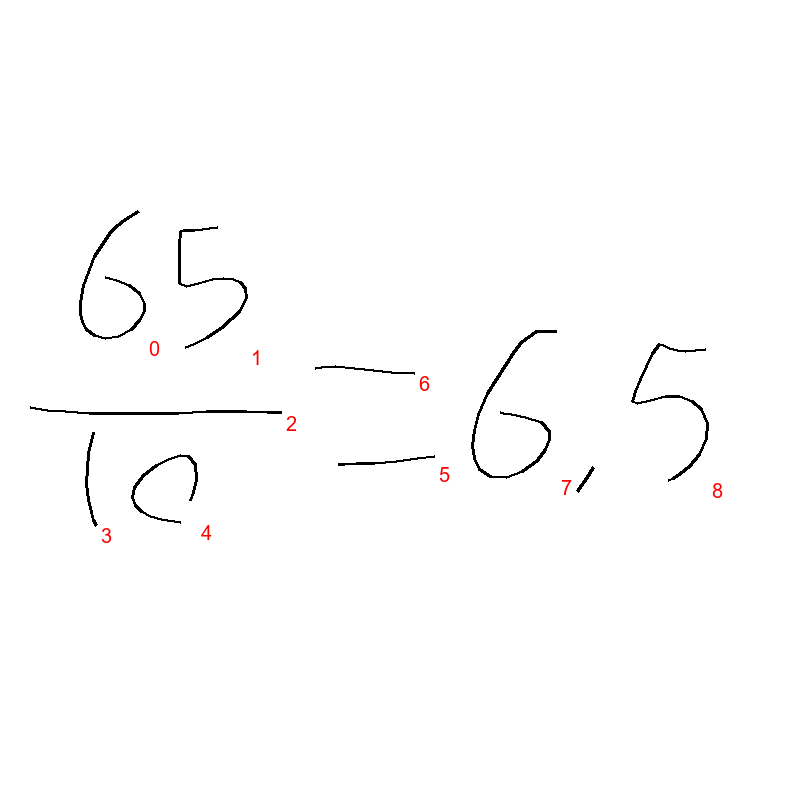 65
10
= 6,5
0
1
2
3
4
5
6
7
8